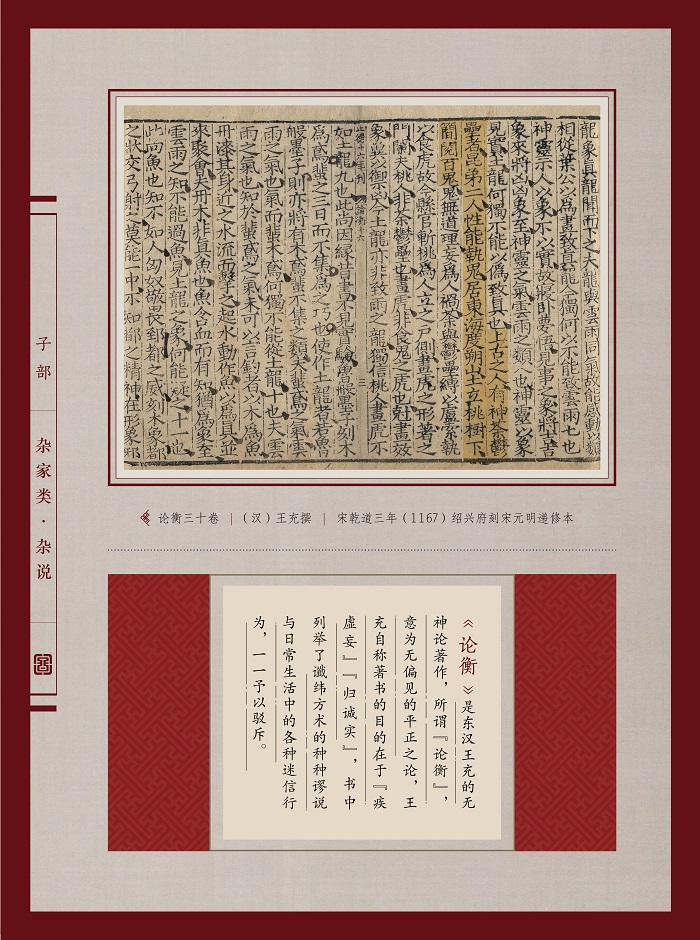 龍象真龍聞而下之夫龍與雲雨同氣故能感動以類
相從葉公以爲畫致真龍今獨何以不能致雲雨七也
神靈示人以象不以實故寢卧夢悟見事之象將吉吉
象來將凶凶象至神靈之氣雲雨之類八也神靈以象
見實土龍何獨不能以偽致真也上古之人有神荼鬱
壘者昆弟二人性能執鬼居東海度朔山上立桃樹下
簡閱百鬼鬼無道理妄爲人禍荼與鬱壘縛以盧索執
以食虎故今縣官斬桃爲人立之戶側畫虎之形著之
門闌夫桃人非荼鬱壘也畫虎非食鬼之虎也刻畫效
象冀以禦凶今土龍亦非致雨之龍獨信桃人畫虎不
論衡十六
三
知土龍九也此尚因緣昔書不見實驗魯般墨子刻木
爲鳶蜚之三日而不集爲之巧也使作土龍者若魯
般墨子則亦將有木鳶蜚不集之類夫蜚鳶之氣雲
雨之氣也氣而蜚木鳶何獨不能從土龍十也夫雲
雨之氣也知於蜚鳶之氣未可以言釣者以木爲魚
丹漆其身近之水流而擊之起水動作魚以爲真並
來聚會夫丹木非真魚也魚含血而有知猶爲象至
雲雨之知不能過魚見土龍之象何能疑之十一也
此尚魚也知不如人匈奴敬畏郅都之威刻木象都
之狀交弓射之莫能一中不知都之精神在形象邪
子部
杂家类·杂说
论衡三十卷 | （汉）王充撰 | 宋乾道三年（1167）绍兴府刻宋元明递修本
《论衡》是东汉王充的无
神论著作，所谓『论衡』，
意为无偏见的平正之论，王
充自称著书的目的在于『疾
虚妄』『归诚实』，书中
列举了谶纬方术的种种谬说
与日常生活中的各种迷信行
为，一一予以驳斥。